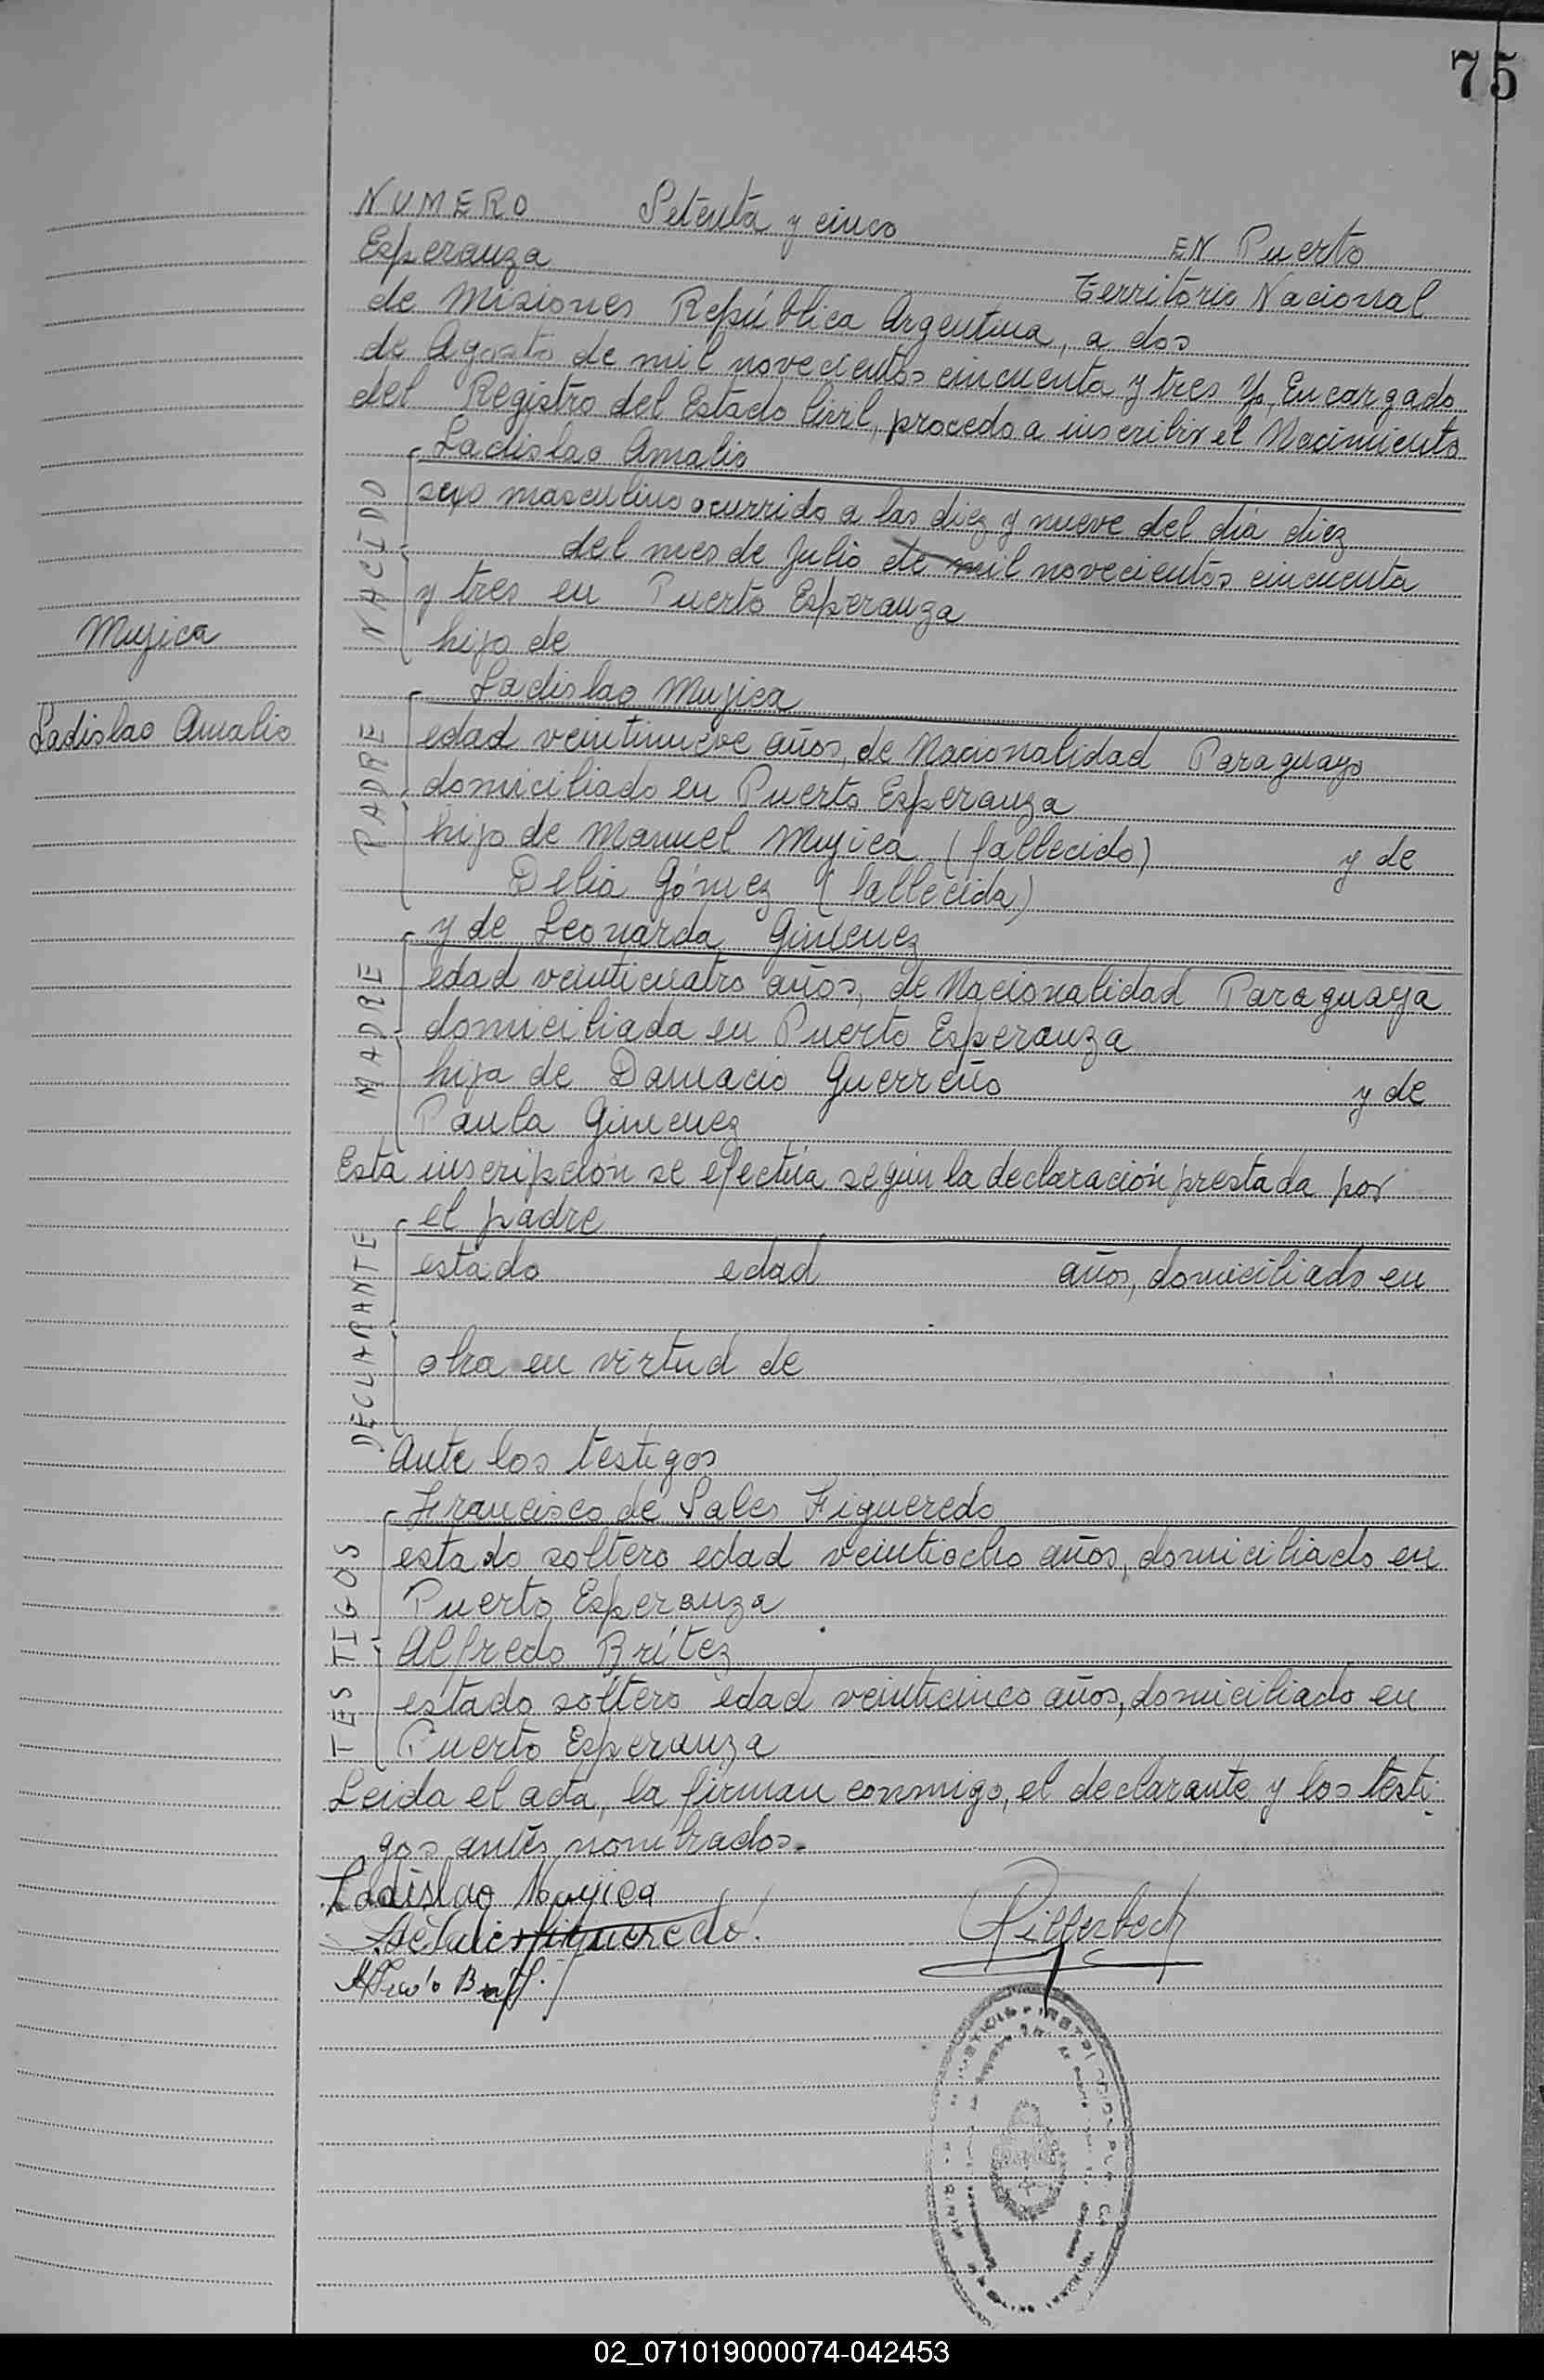 75
NUMERO Setenta y cinco EN Puerto
Esperanza Territorio Nacional
de Misiones República Argentina, a dos
de Agosto de mil novecientos cincuenta y tres Yo, Encargado
del Registro del Estado Civil, procedo a inscribir el Nacimiento
NACIDO
Ladislao Amalio
sexo masculino ocurrido a las diez y nueve del día diez
del mes de Julio de mil novecientos cincuenta
y tres en Puerto Esperanza
hijo de
Mujica
Ladislao Amalio
PADRE
Ladislao Mujica
edad veintinueve años, de Nacionalidad Paraguayo
domiciliado en Puerto Esperanza
hijo de Manuel Mujica (fallecido) y de
Delia Gómez (fallecida)
MADRE
y de Leonarda Gimenez
edad veinticuatro años, de Nacionalidad Paraguaya
domiciliada en Puerto Esperanza
hija de Damacio Guerreño y de
Paula Gimenez
Esta inscripción se efectúa según la declaración prestada por
DECLARANTE
el padre
estado edad años, domiciliado en
obra en virtud de
Ante los testigos
TESTIGOS
Francisco de Sales Figueredo
estado soltero edad veintiocho años, domiciliado en
Puerto Esperanza
Alfredo Brítez
estado soltero edad veinticinco años, domiciliado en
Puerto Esperanza
Leida el acta, la firman conmigo, el declarante y los testi-
gos antes nombrados.
Ladislao Mujica
Figueredo
02_071019000074-042453